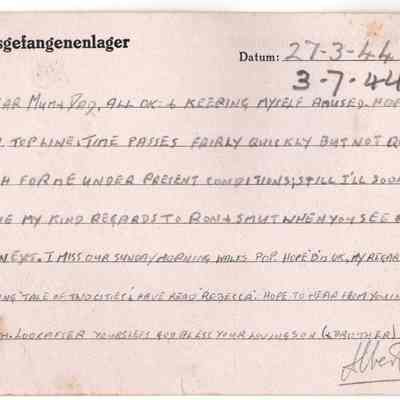 sgefangenenlager
Datum: 27-3-44
3-7-44
EAR MUM & DAD, ALL OK. & KEEPING MYSELF AMUSED. HOP
TOP LINE. TIME PASSES FAIRLY QUICKLY BUT NOT Q
H FOR ME UNDER PRESENT CONDITIONS, STILL I'LL SOON
E MY KIND REGARDS TO RON & SMUT WHEN YOU SEE
N EYE. I MISS OUR SUNDAY MORNING WALKS POP. HOPE D'N OK, MY REGAR
NG 'TALE OF TWO CITIES', HAVE READ 'REBECCA'. HOPE TO HEAR FROM YOU
LOOK AFTER YOURSELFS GOD BLESS YOUR LOVING SON (& BROTHER)
Albert